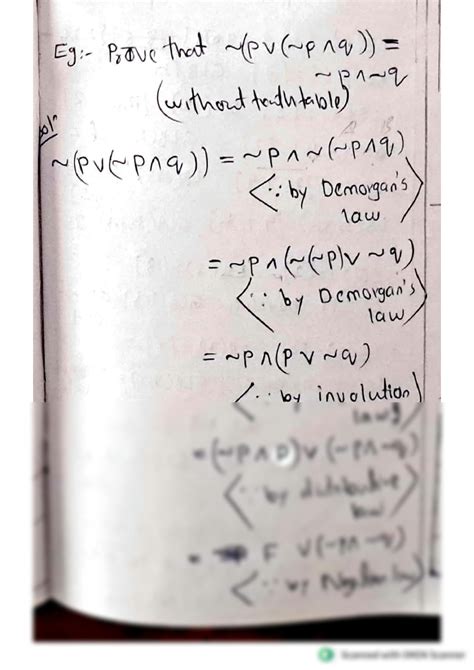 Eg:- Prove that ~(p∨(~p∧q)) =
~p∧~q
(without truth table)
Solⁿ
~(p∨(~p∧q)) = ~p∧~(~p∧q)
<∵ by Demorgan's
law>
= ~p∧(~(~p)∨~q)
<∵ by Demorgan's
law>
= ~p∧(p∨~q)
<∵ by involution
law>
= (~p∧p)∨(~p∧~q)
<∵ by distributive
law>
= F ∨(~p∧~q)
<∵ by
Scanned with OKEN Scanner